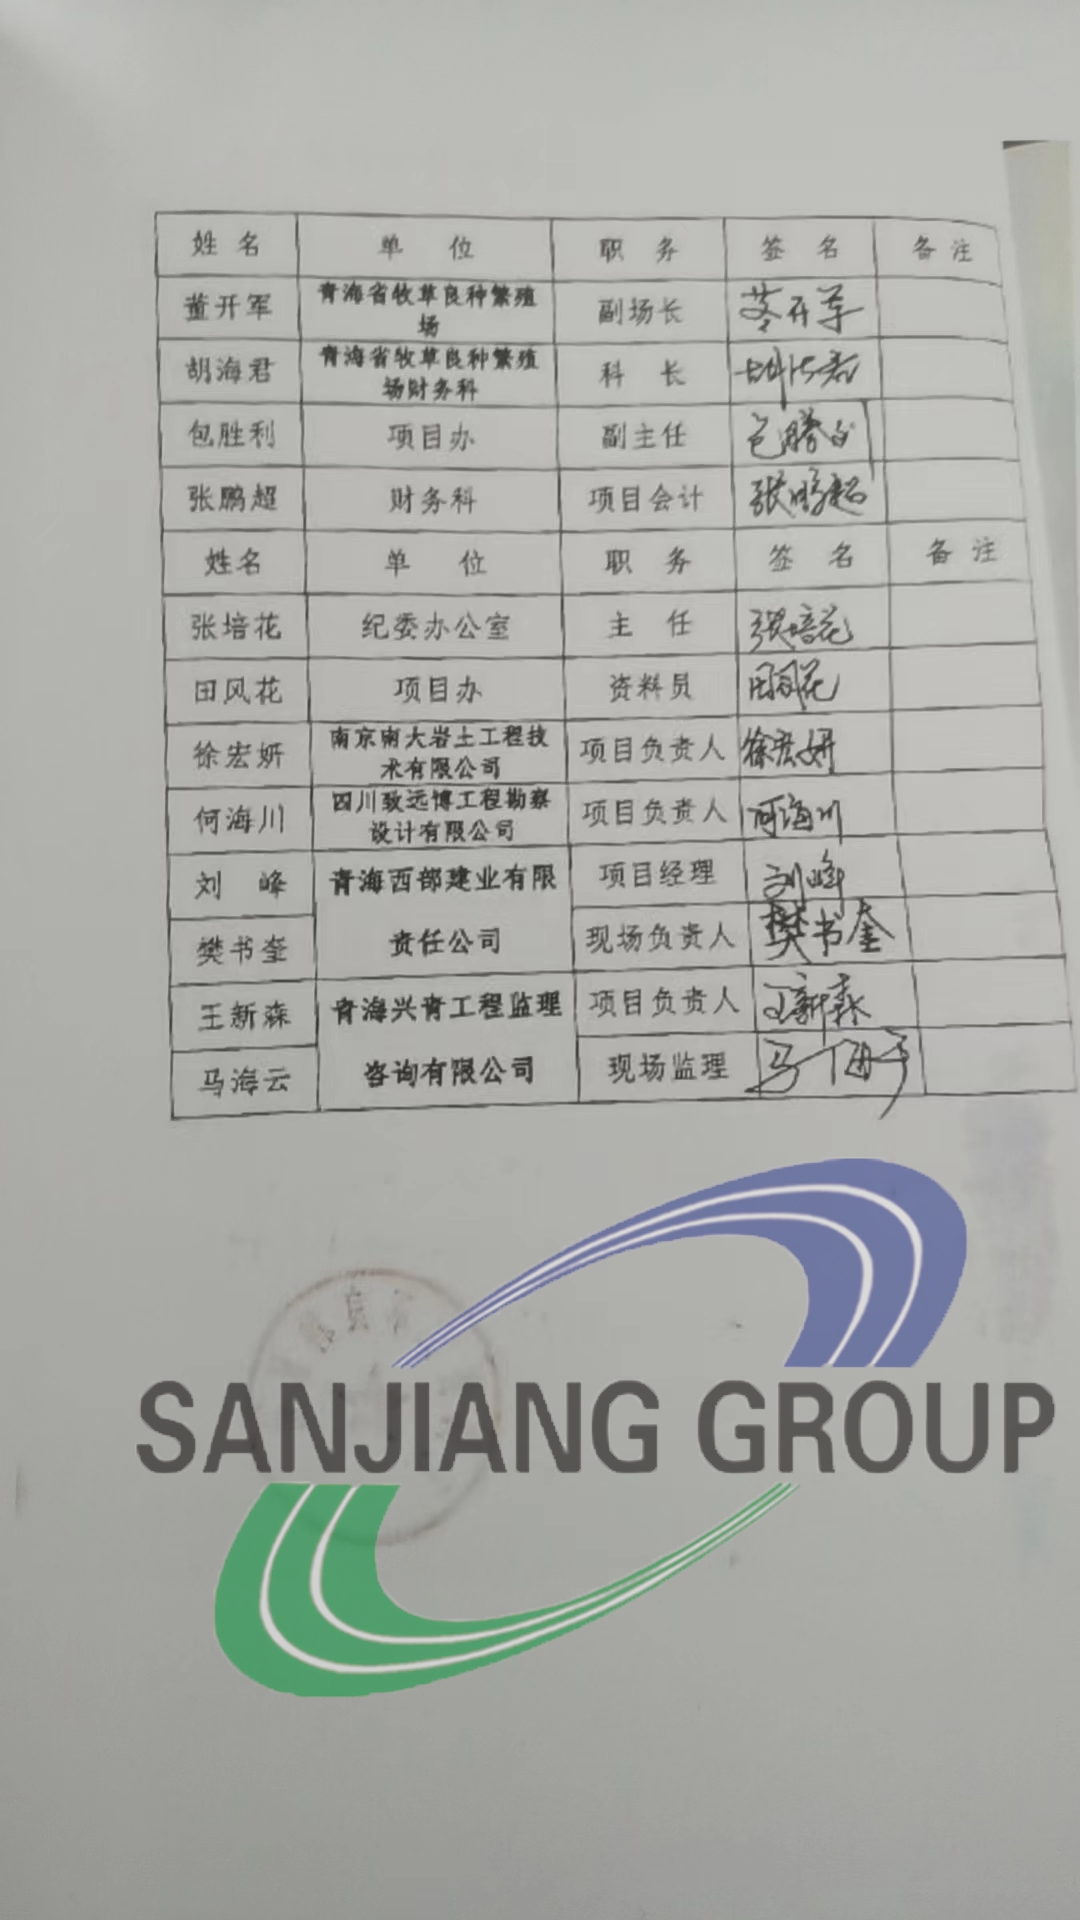 姓 名 单 位 职 务 签 名 备 注
董开军 青海省牧草良种繁殖场 副场长 董开军
胡海君 青海省牧草良种繁殖场财务科 科 长 胡海君
包胜利 项目办 副主任 包胜利
张鹏超 财务科 项目会计 张鹏超
姓名 单 位 职 务 签 名 备 注
张培花 纪委办公室 主 任 张培花
田风花 项目办 资料员 田风花
徐宏妍 南京南大岩土工程技术有限公司 项目负责人 徐宏妍
何海川 四川致远博工程勘察设计有限公司 项目负责人 何海川
刘 峰 青海西部建业有限责任公司 项目经理 刘峰
樊书奎 现场负责人 樊书奎
王新森 青海兴青工程监理咨询有限公司 项目负责人 王新森
马海云 现场监理
SANJIANG GROUP